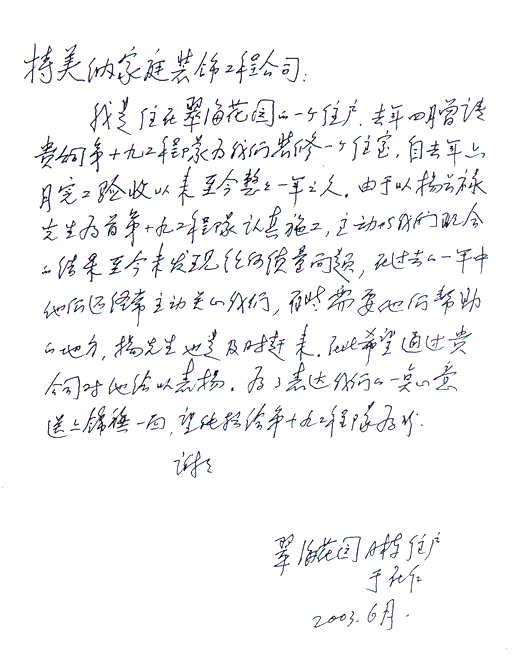 特美纳家庭装饰工程公司:
我是住在翠海花园的一个住户.去年四月曾请
贵司第十九工程队为我们装修一个住室,自去年六
月完工验收以来至今整整一年之久.由于以杨云禄
先生为首第十九工程队认真施工,主动与我们配合
的结果至今未发现任何质量问题,在过去的一年中
他们还经常主动关心我们,有些需要他们帮助
的地方,杨先生也是及时赶来.在此希望通过贵
公司对他给以表扬.为了表达我们的一点心意
送上锦旗一面,望转给第十九工程队为盼.
谢谢
翠海花园 住户
于
2003.6月.